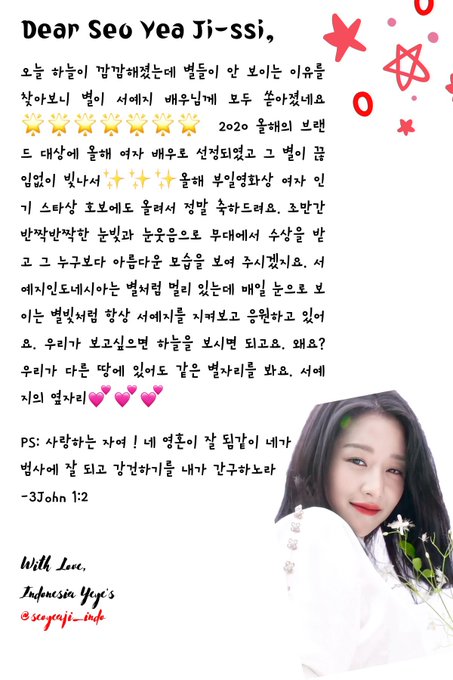 Dear Seo Yea Ji-ssi,
오늘 하늘이 깜깜해졌는데 별들이 안 보이는 이유를
찾아보니 별이 서예지 배우님께 모두 쏟아졌네요
🌟🌟🌟🌟🌟🌟🌟 2020 올해의 브랜
드 대상에 올해 여자 배우로 선정되였고 그 별이 끊
임없이 빛나서✨✨✨올해 부일영화상 여자 인
기 스타상 호보에도 올려서 정말 축하드려요. 조만간
반짝반짝한 눈빛과 눈웃음으로 무대에서 수상을 받
고 그 누구보다 아름다운 모습을 보여 주시겠지요. 서
예지인도네시아는 별처럼 멀리 있는데 매일 눈으로 보
이는 별빛처럼 항상 서예지를 지켜보고 응원하고 있어
요. 우리가 보고싶으면 하늘을 보시면 되고요. 왜요?
우리가 다른 땅에 있어도 같은 별자리를 봐요. 서예
지의 옆자리💕💕💕
PS: 사랑하는 자여 ! 네 영혼이 잘 됨같이 네가
범사에 잘 되고 강건하기를 내가 간구하노라
-3John 1:2
With Love,
Indonesia Yeye's
@seoyeaji_indo